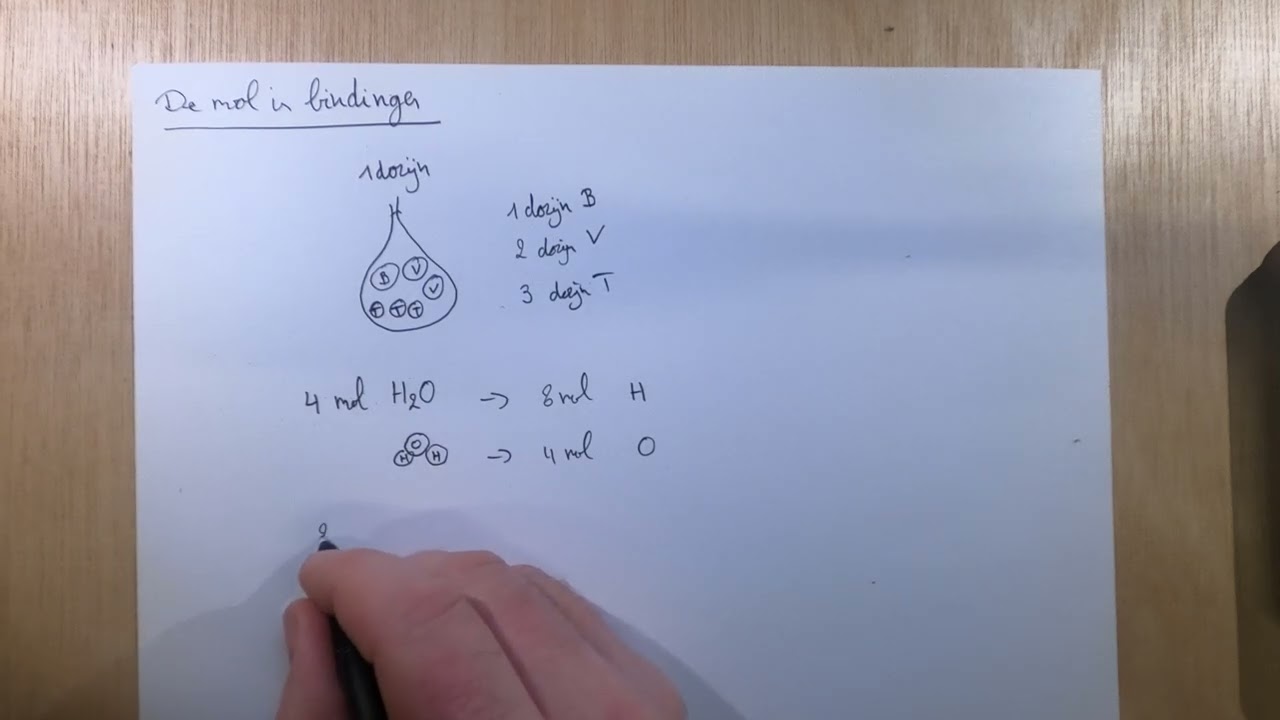 De mol in bindingen
1 dozijn
1 dozijn B
2 dozijn V
3 dozijn T
B V
V
T T T
4 mol H₂O → 8 mol H
H O H → 4 mol O